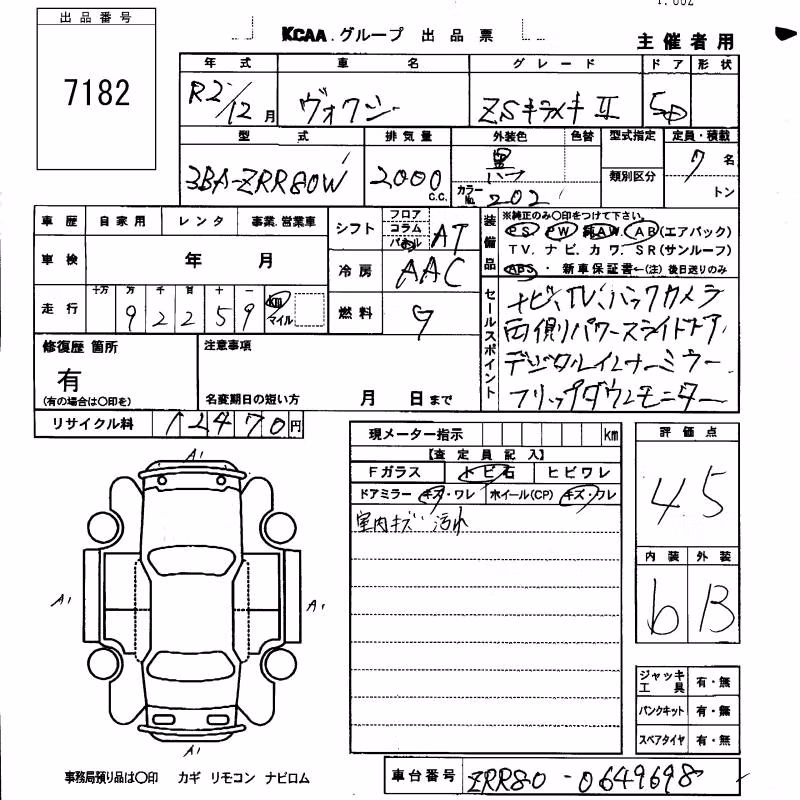 出品番号
7182
KCAA.グループ 出品票
主催者用
年式 車名 グレード ドア 形状
R2/12月 ヴォクシー ZSキラメキⅡ 5D
型式 排気量 外装色 色替 型式指定 定員・積載
3BA-ZRR80W 2000 C.C. 黒 カラーNo. 202 類別区分 7名
トン
車歴 自家用 レンタ 事業.営業車
車検 年 月
走行 十万 万 千 百 十 一
9 2 2 5 9 km マイル
シフト フロア コラム パネル AT
冷房 AAC
燃料 G
装備品
※純正のみ〇印をつけて下さい。
PS PW 純AW. AB(エアバック)
TV. ナビ. カワ. SR(サンルーフ)
ABS ・ 新車保証書←(注)後日送りのみ
セールスポイント
ナビ、TV、バックカメラ
両側パワースライドドア
デジタルインナーミラー
フリップダウンモニター
修復歴 箇所
有
(有の場合は〇印を)
注意事項
名変期日の短い方 月 日まで
リサイクル料 12470円
現メーター指示 km
【査定員記入】
Fガラス トビ石 ヒビワレ
ドアミラー キズ・ワレ ホイール(CP) キズ・ワレ
室内キズ 汚れ
評価点
4.5
内装 外装
b B
ジャッキ工具 有・無
パンクキット 有・無
スペアタイヤ 有・無
A1
A1
A1
A1
事務局預り品は〇印 カギ リモコン ナビロム
車台番号 ZRR80-0649698